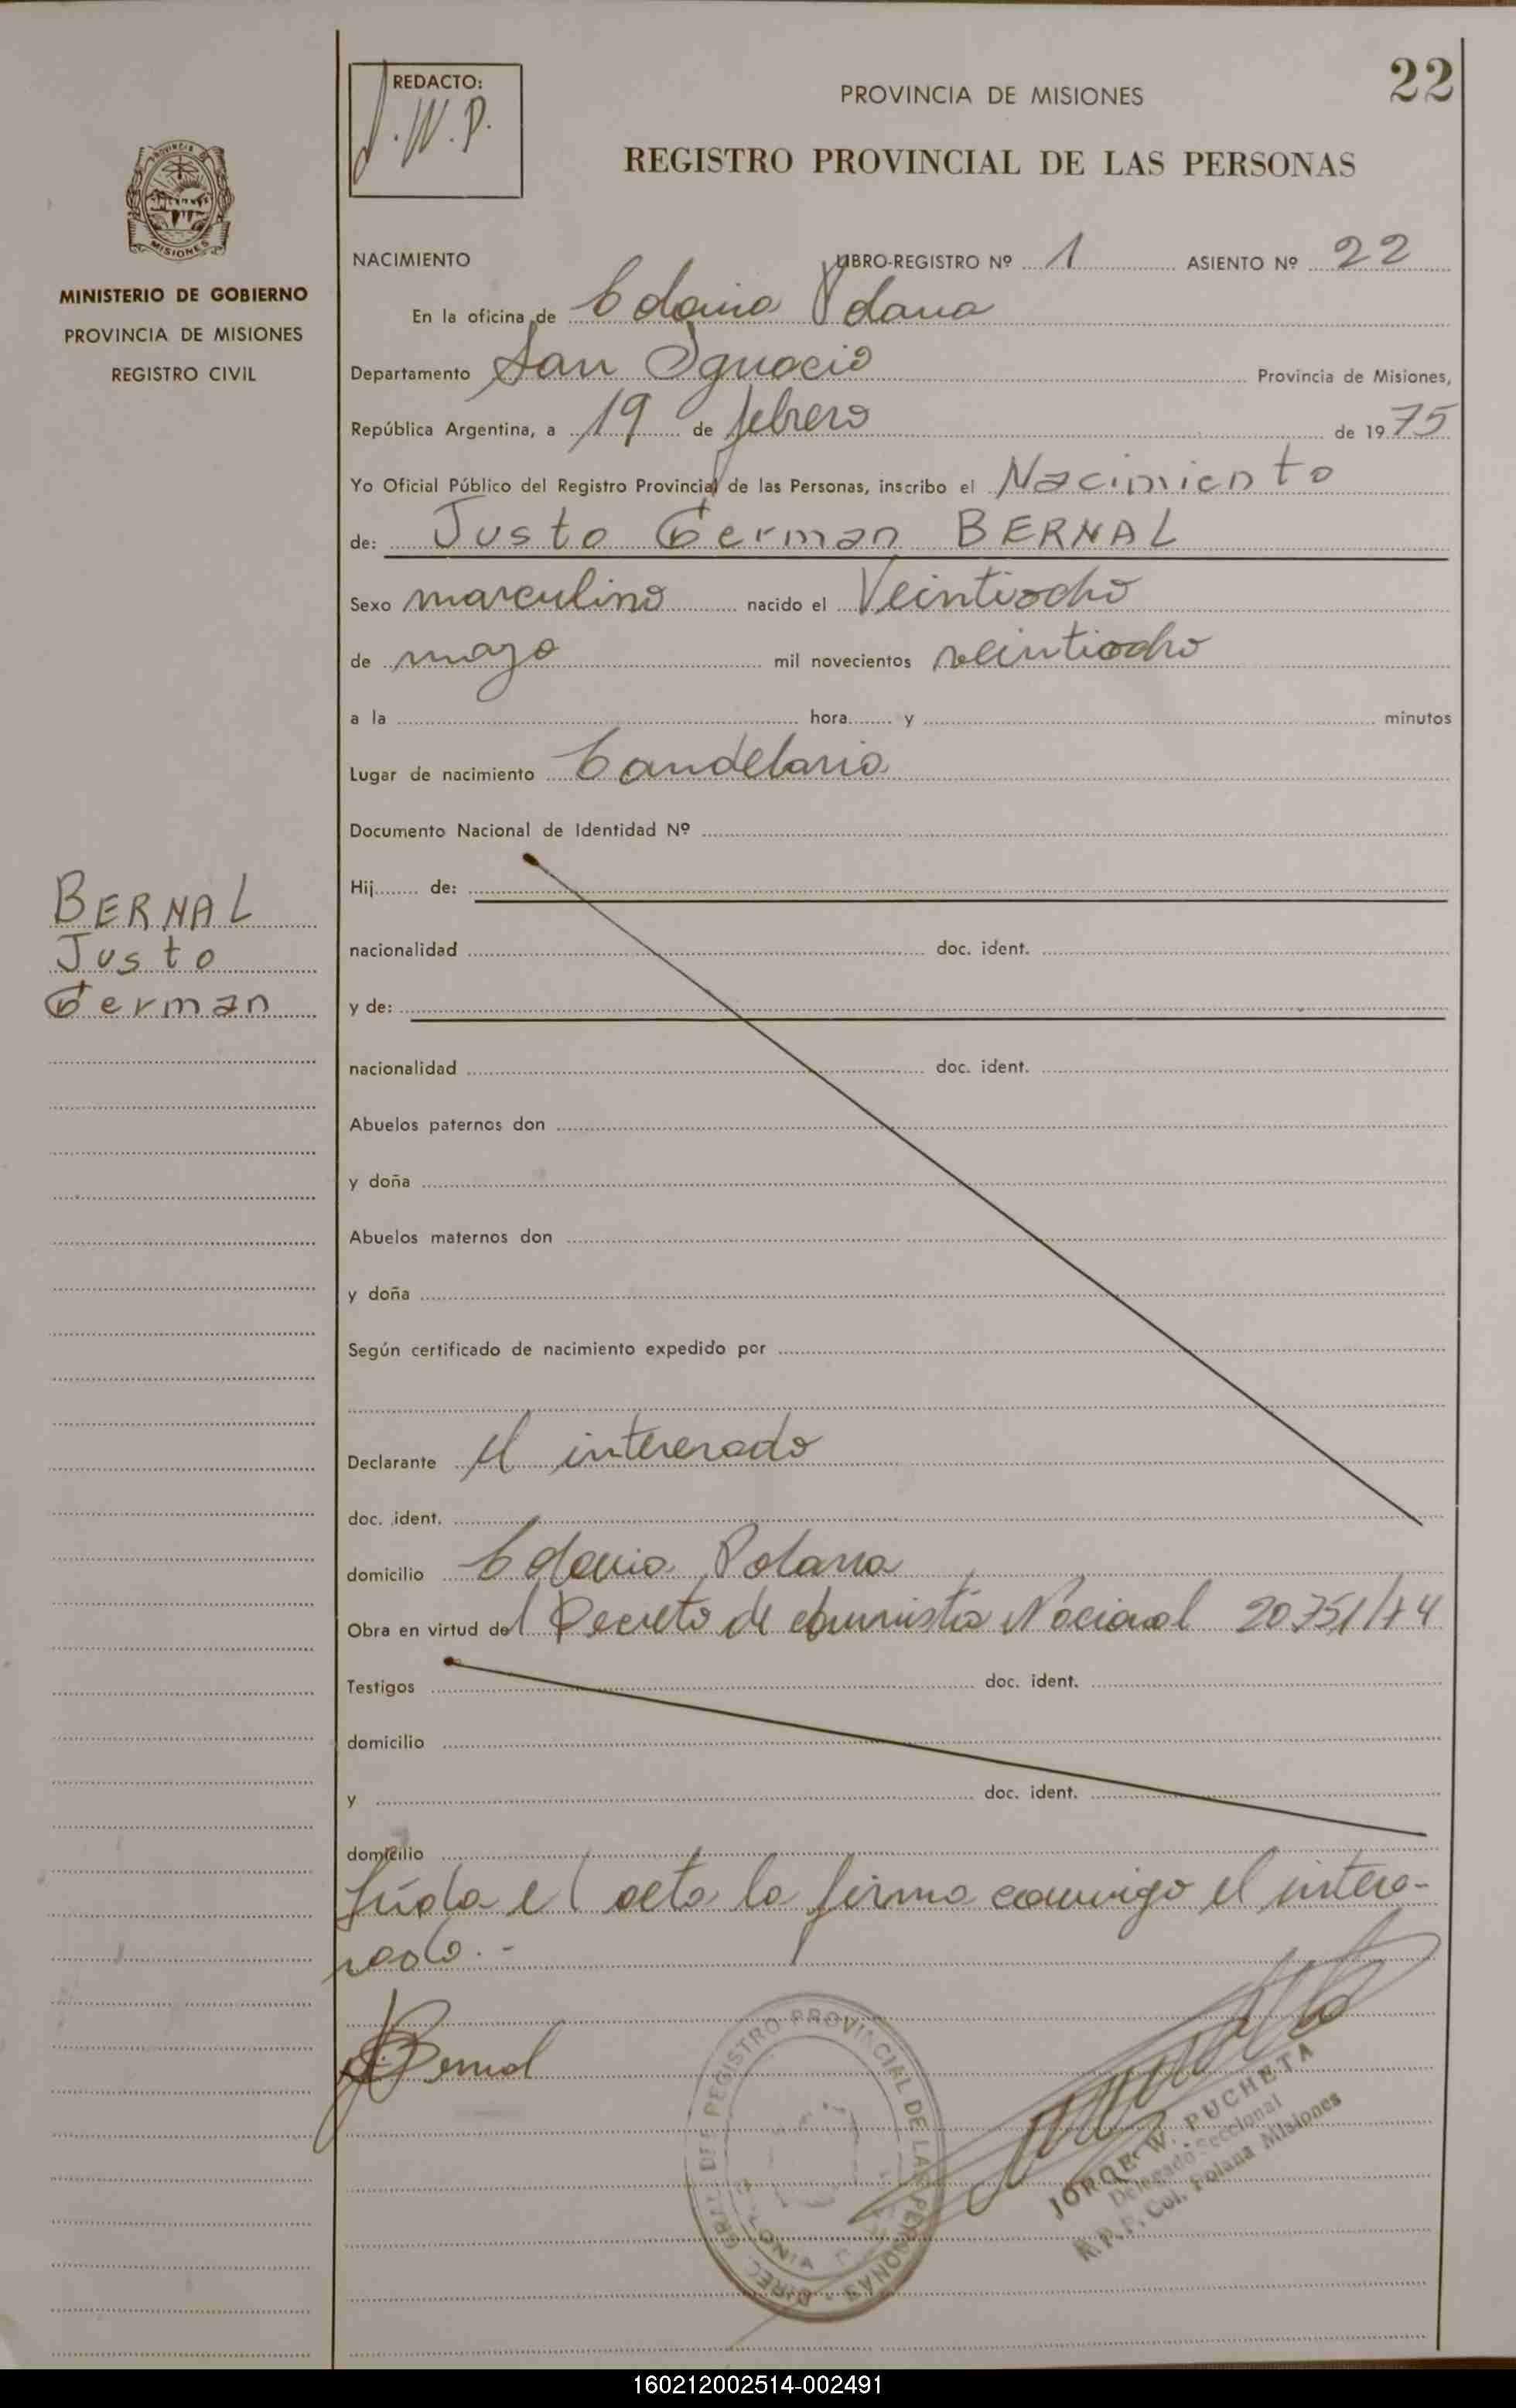 22
REDACTO:
J.W.P.
PROVINCIA DE MISIONES
REGISTRO PROVINCIAL DE LAS PERSONAS
PROVINCIA
MISIONES
MINISTERIO DE GOBIERNO
PROVINCIA DE MISIONES
REGISTRO CIVIL
NACIMIENTO LIBRO-REGISTRO Nº 1 ASIENTO Nº 22
En la oficina de Colonia Polana
Departamento San Ignacio Provincia de Misiones,
República Argentina, a 19 de febrero de 1975
Yo Oficial Público del Registro Provincial de las Personas, inscribo el Nacimiento
de: Justo German BERNAL
Sexo masculino nacido el Veintiocho
de mayo mil novecientos veintiocho
a la hora y minutos
Lugar de nacimiento Candelaria
Documento Nacional de Identidad Nº
BERNAL
Justo
German
Hij de:
nacionalidad doc. ident.
y de:
nacionalidad doc. ident.
Abuelos paternos don
y doña
Abuelos maternos don
y doña
Según certificado de nacimiento expedido por
Declarante el interesado
doc. ident.
domicilio Colonia Polana
Obra en virtud del Decreto de amnistía Nacional 20.751/74
Testigos doc. ident.
domicilio
y doc. ident.
domicilio
Leída el acta la firma conmigo el intere-
sado.-
Bernal
DIREC. GRAL. DEL REGISTRO PROVINCIAL DE LAS PERSONAS
JORGE W. PUCHETA
Delegado Seccional
R. P. P. Col. Polana Misiones
160212002514-002491